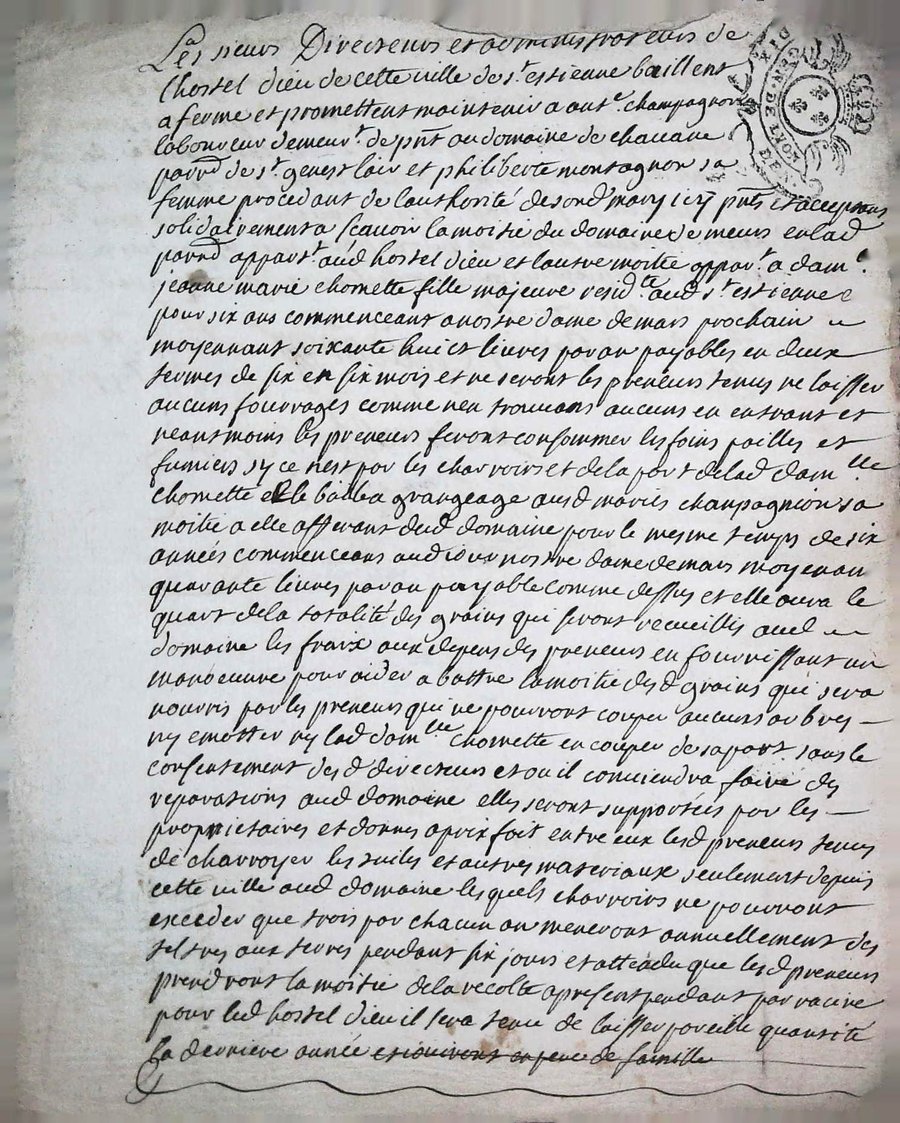 Les sieurs Directeurs et administrateurs de
l'hostel dieu de cette ville de st estienne baillent
a ferme et promettent maintenir a ant.e champagnon
laboureur demeur.t de pnt au domaine de chavane
parr.d de st genest lair et philiberte montagnon sa
femme procedant de lauthorité de sond mary icy pnts et acceptans
solidairement a scavoir la moitié du domaine de meurs en lad
parr.d appart.t aud hostel dieu et lautre moitié appar.t a dam.e
jeanne marie chomette fille majeure resid.te aud st estienne
pour six ans commenceant a nostre dame de mars prochain
moyennant soixante huict livres par an payables en deux
termes de six en six mois et ne seront les preneurs tenus ne laisser
aucuns fourrages comme nen trouvans aucuns en entrant et
neantmoins les preneurs feront consommer les foins pailles et
fumiers sy ce nest par les charroirs et de la part de lad dam.lle
chomette elle bailla grangeage ausd mariés champagnon sa
moitié a elle afferant dud domaine pour le mesme temps de six
années commenceans aud jour nostre dame de mars moyenan
quarante livres par an payable comme dessus et elle aura le
quart de la totalité des grains qui seront recueillis aud
domaine les fraix aux depens des preneurs en fournissant un
manoeuvre pour aider a battre la moitié des d grains qui sera
nourris par les preneurs qui ne pourront couper aucuns arbres
ny emotter ny lad dam.lle chomette en couper de sa part sans le
consentement des d directeurs et ou il conviendra faire des
reparations aud domaine elles seront supportées par les
proprietaires et donnes a prix fait entre eux les d preneurs tenus
de charroyer les tuiles et autres materiaux seulement depuis
cette ville aud domaine lesquels charroirs ne pourront
exceder que trois par chacun an meneront annuellement des
aux terres pendant six jours et attendu que les d preneurs
prendront la moitié de la recolte a present pendant par racine
pour led hostel dieu il sera tenu de laisser pareille quantité
la derniere année de famille
GEN DE LYON